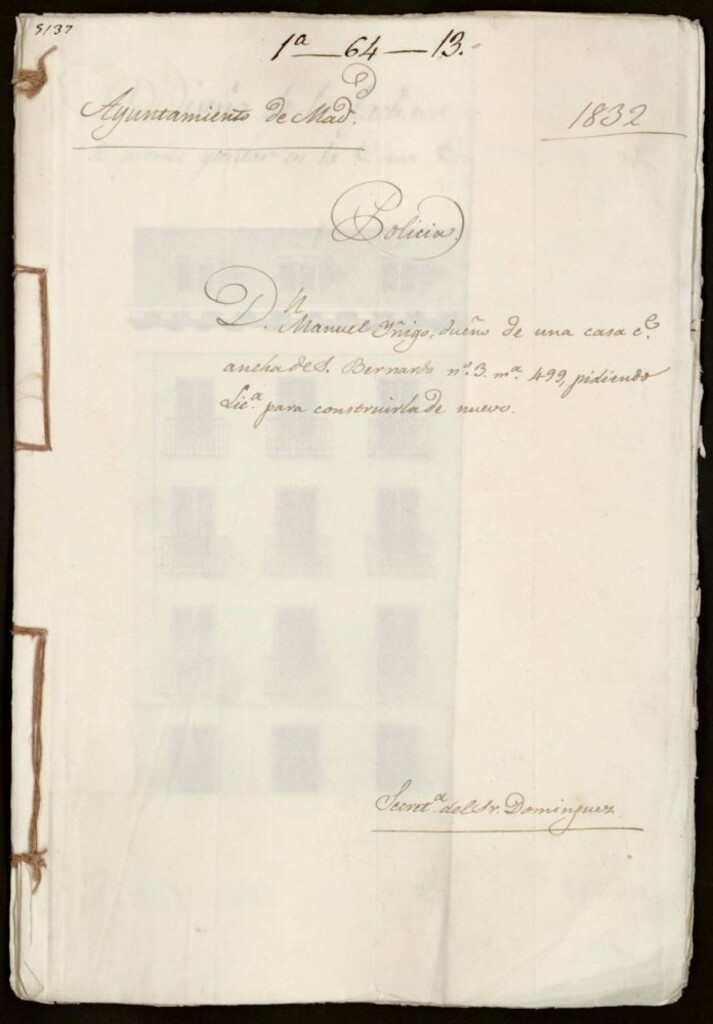 5137
1ª — 64 — 13.
Ayuntamiento de Madᵈ.
1832
Policia
D.ⁿ Manuel Yñigo, dueño de una casa c.ᵉ
ancha de S. Bernardo nº. 3. mª. 499, pidiendo
Lic.ª para construirla de nuevo.
Secret.ª del Sr. Dominguez